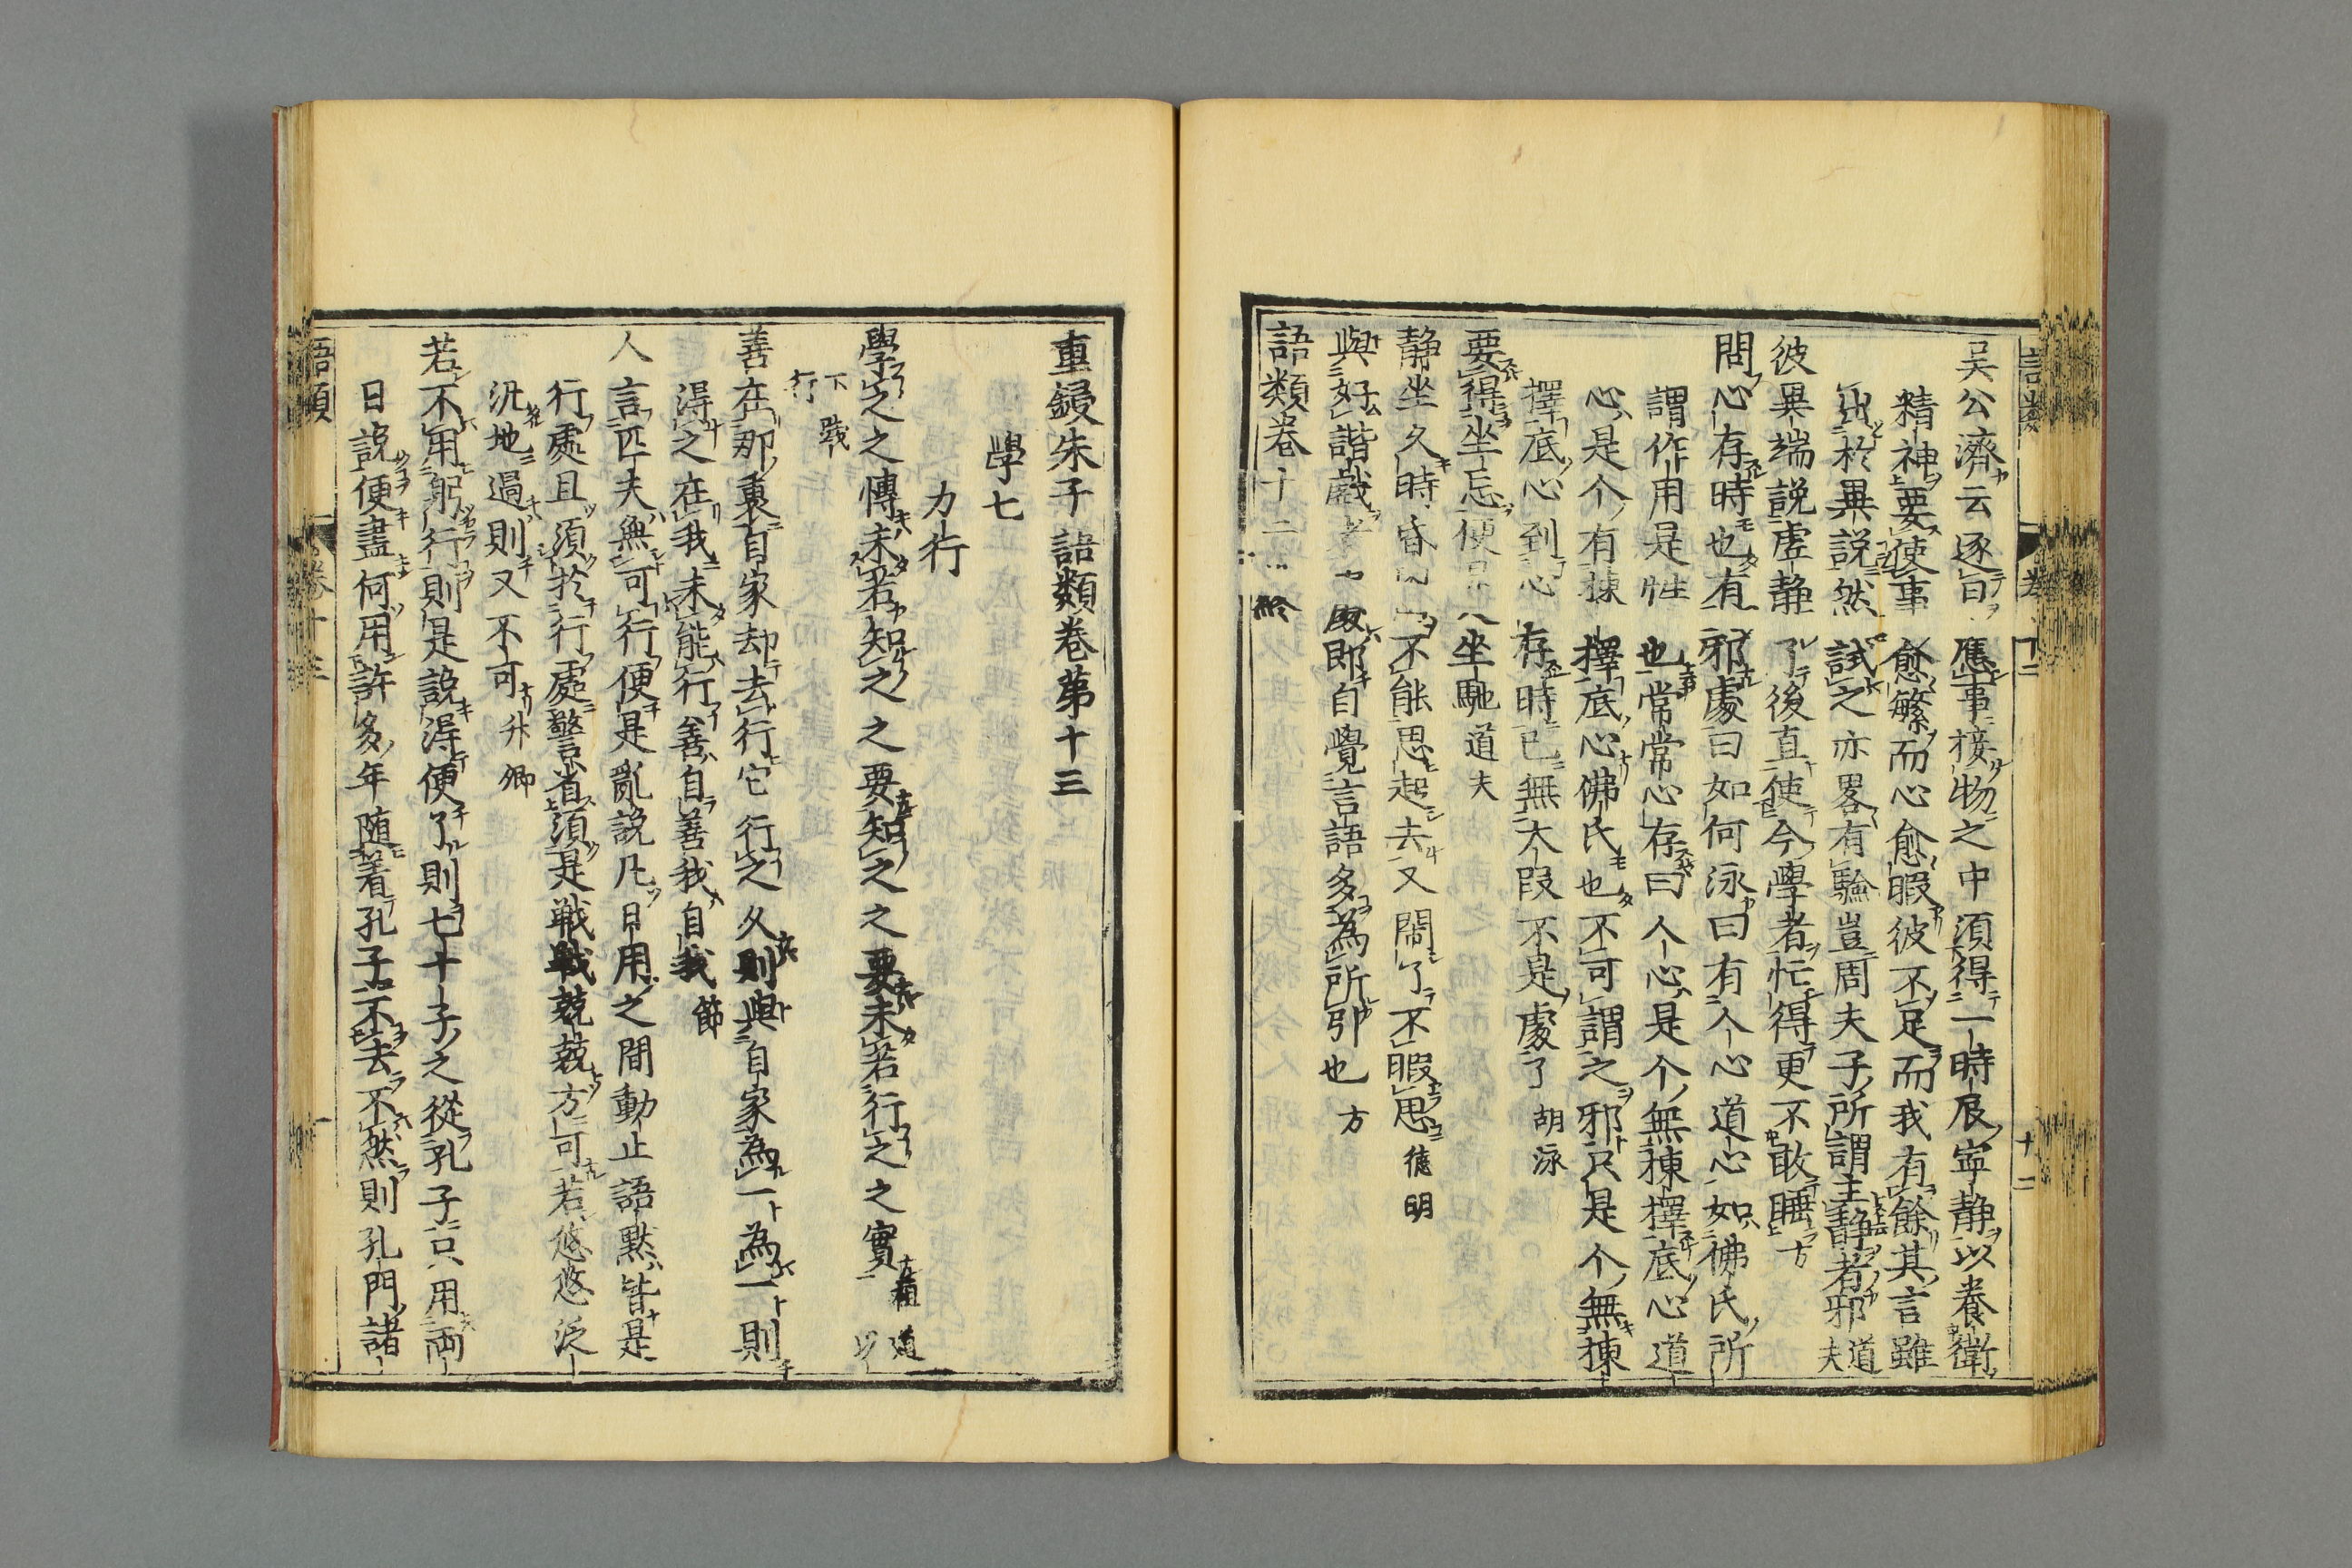 吴公濟云逐日應事接物之中須得一時辰寧静以養衛
精神要使事愈繁而心愈暇彼不足而我有餘其言雖
出於異説然試之亦畧有驗豈周夫子所謂主静者邪道夫
被異端説虛静了後直使今學者忙得更不敢睡方
問心存時也有邪處曰如何泳曰有人心道心如佛氏所
謂作用是性也常常心存曰人心是个無揀擇底心道
心是个有揀擇底心佛氏也不可謂之邪只是个無揀
擇底心到心存時已無大段不是處了胡泳
要得坐忘便是坐馳道夫
静坐久時昏困不能思起去又鬧了不暇思德明
與好諧戲者即自覺言語多為所引也方
語類卷十二終
重鋟朱子語類卷第十三
學七
力行
學之之博未若知之之要知之之要未若行之之實道
善在那裏自家却去行它行之久則與自家為一為一則
得之在我未能行善自善我自我節
人言匹夫無可行便是亂說凡日用之間動止語默皆是
行處且須於行處警省須是戦戦兢兢方可若悠悠泛
泛地過則又不可升卿
若不用躬行則是說得便了則七十子之從孔子只用兩
日說便盡何用許多年随着孔子不去不然則孔門諸
語類
卷十三
一
十二